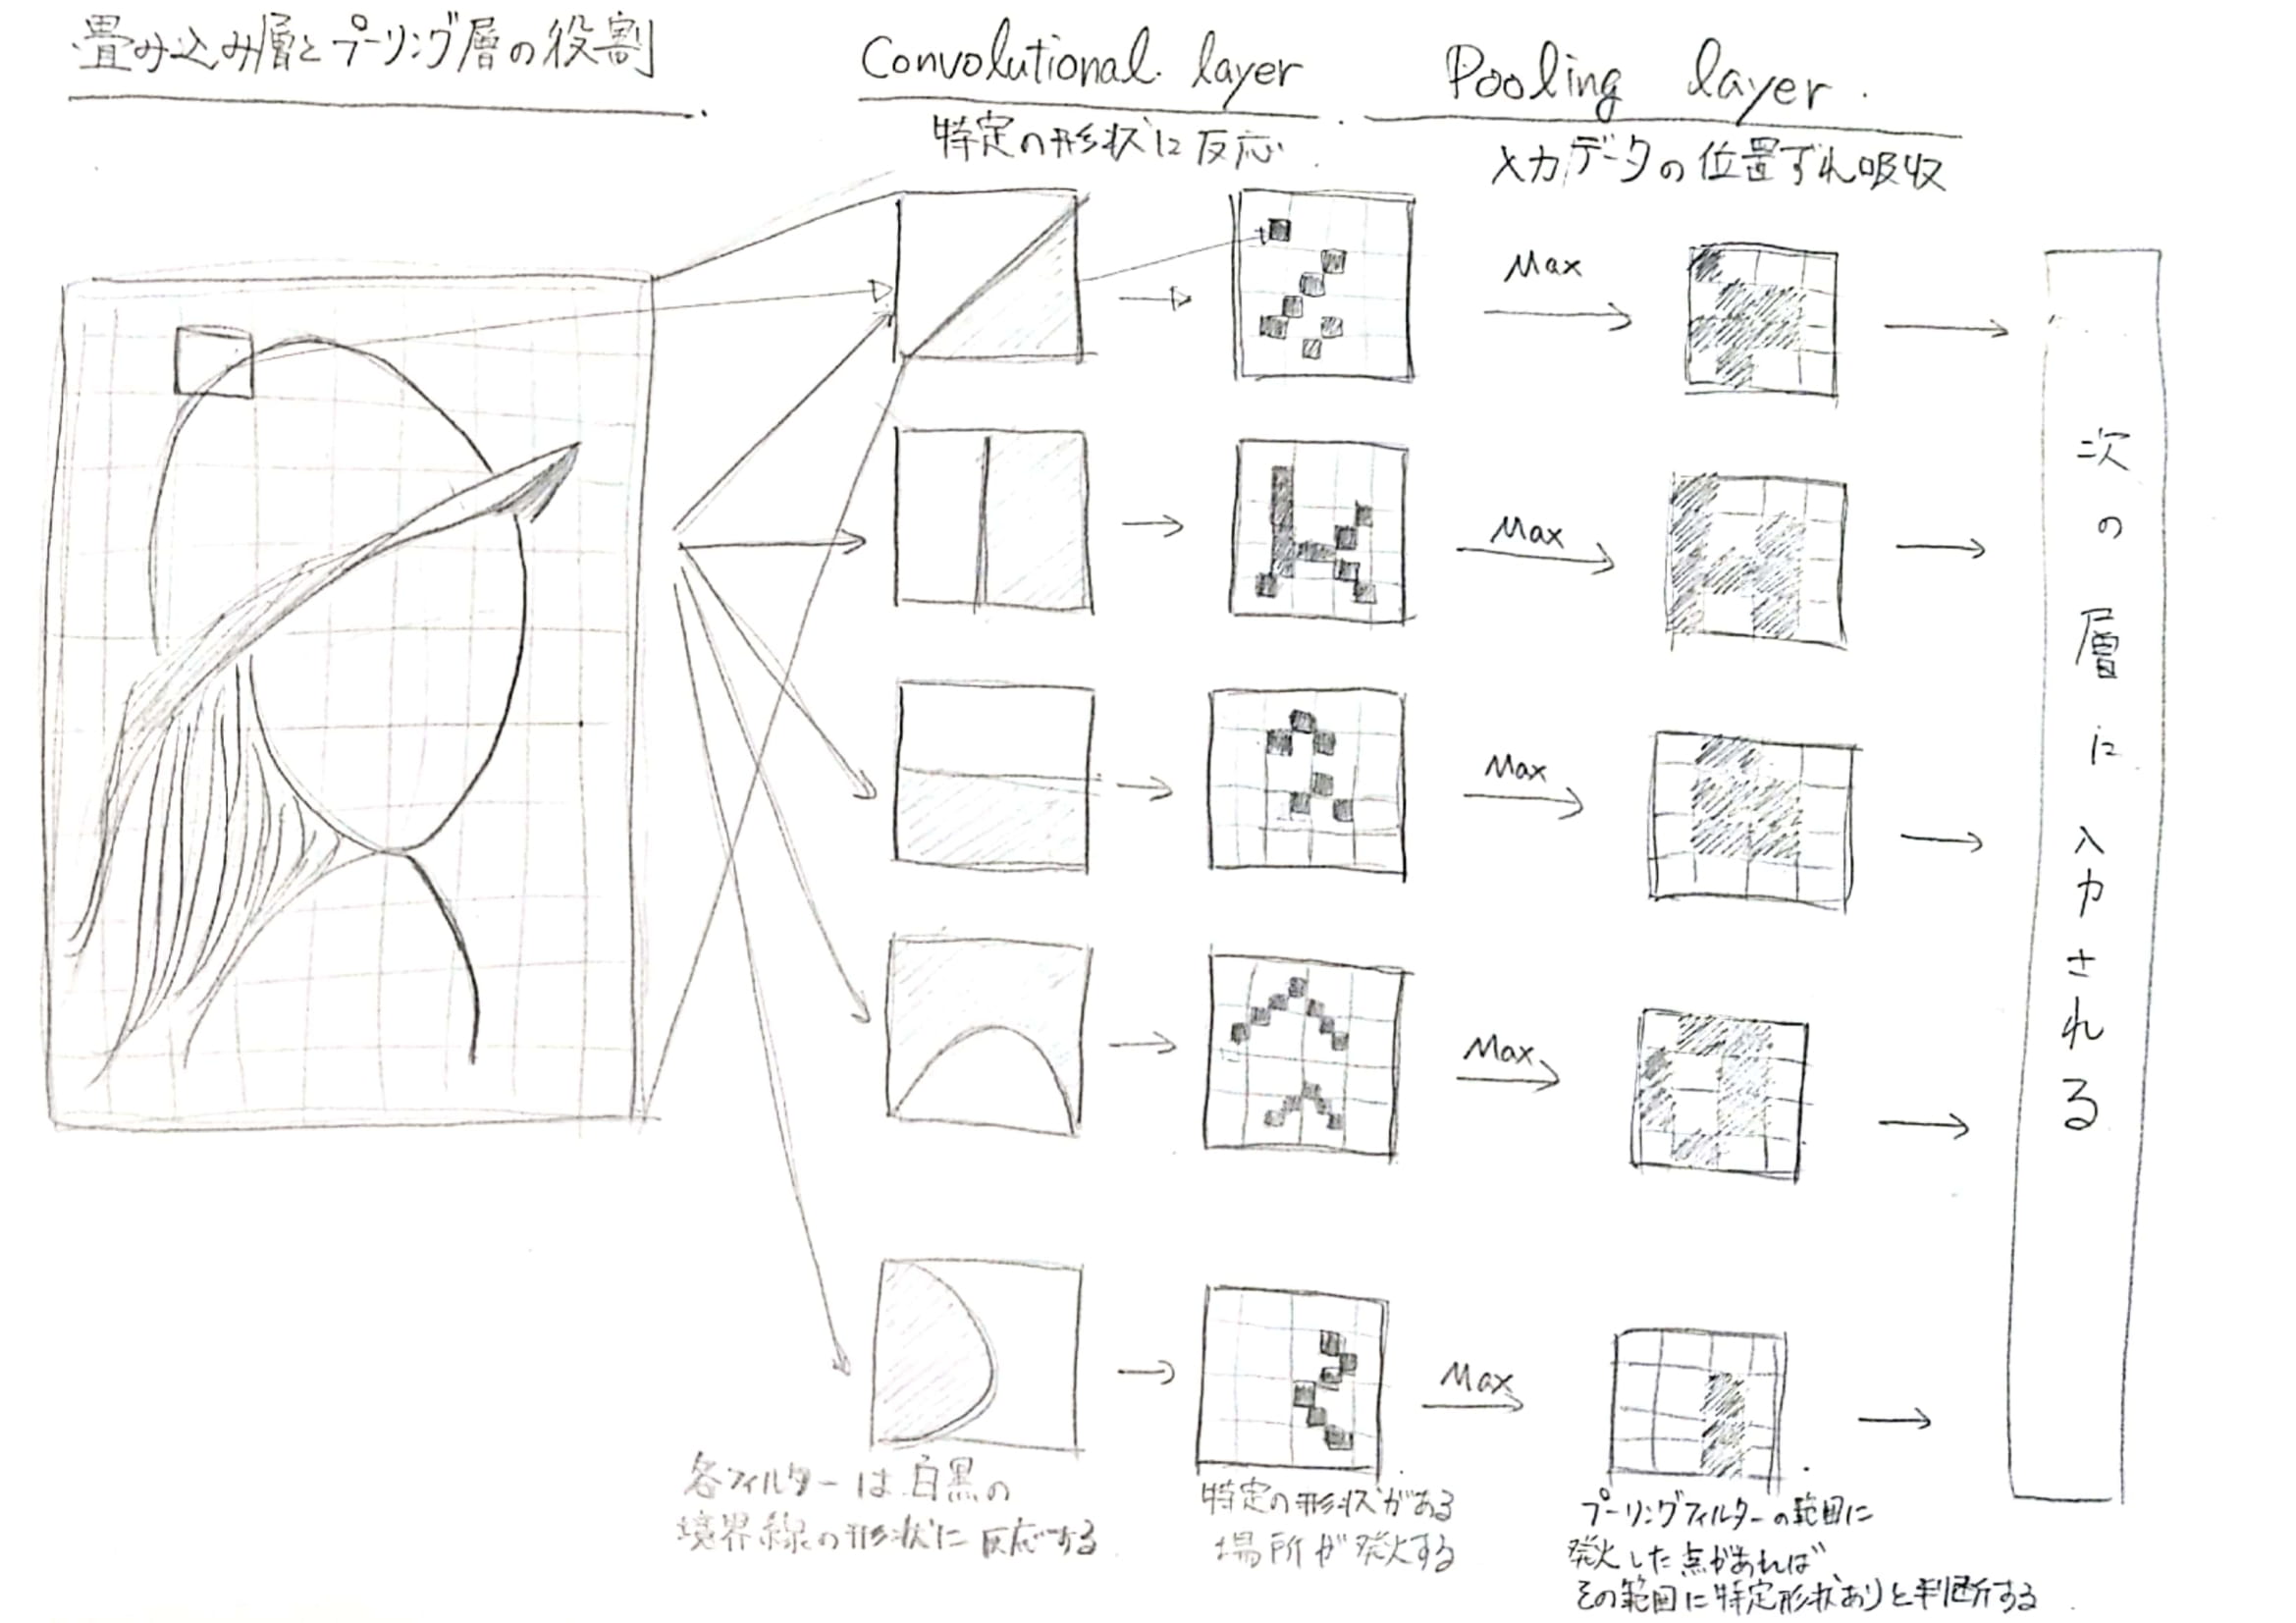 畳み込み層とプーリング層の役割
Convolutional layer
特定の形状に反応
Pooling layer
入力データの位置ずれ吸収
Max
Max
Max
Max
Max
次の層に入力される
各フィルターは白黒の
境界線の形状に反応する
特定の形状がある
場所が発火する
プーリングフィルターの範囲に
発火した点があれば
その範囲に特定形状ありと判断する